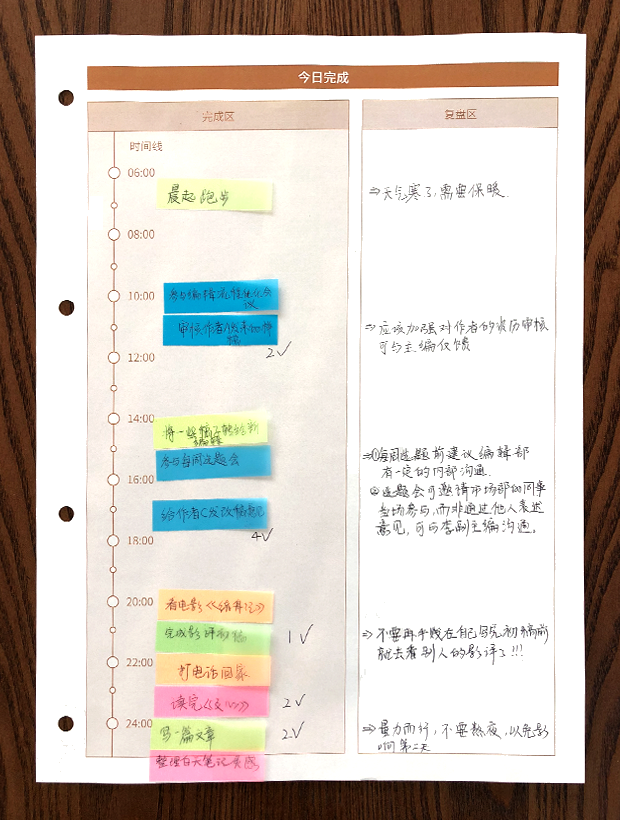 今日完成
完成区
复盘区
时间线
06:00
晨起跑步
⇒天气寒了,需要保暖.
08:00
10:00
参与编辑流程优化会
议
审核作者
2√
⇒应该加强对作者的 审核
可与主编反馈
12:00
14:00
将一些稿子转给新
编辑
参与每周选题会
⇒①每周选题前建议编辑部
有一定的内部沟通.
②选题会可邀请市场部的同事
当场参与,而非通过他人表述
意见,可与李副主编沟通。
16:00
给作者C发改稿意见
4√
18:00
20:00
看电影《 》
完成影评初稿
1√
⇒不要再手贱在自己写完初稿前
就去看别人的影评了!!!
22:00
打电话回家
读完《 》
2√
24:00
写一篇文章
2√
⇒量力而行,不要熬夜,以免影
响第二天
整理白天笔记